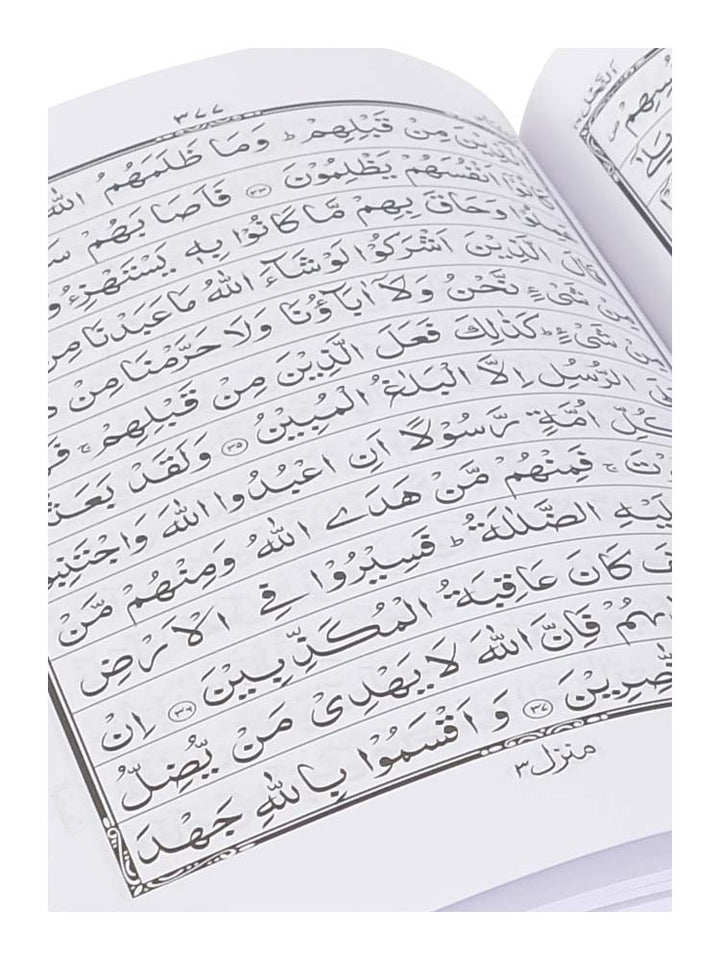 ۳۷۷
الَّذِيْنَ مِنْ قَبْلِهِمْ ؕ وَمَا ظَلَمَهُمُ اللّٰهُ
كَانُوْۤا اَنْفُسَهُمْ يَظْلِمُوْنَ ۳۳ فَاَصَابَهُمْ
عَمِلُوْا وَحَاقَ بِهِمْ مَّا كَانُوْا بِهٖ يَسْتَهْزِءُوْ
قَالَ الَّذِيْنَ اَشْرَكُوْا لَوْ شَآءَ اللّٰهُ مَا عَبَدْنَا مِنْ
مِنْ شَیْءٍ نَّحْنُ وَلَاۤ اٰبَآؤُنَا وَلَا حَرَّمْنَا مِنْ
مِنْ شَیْءٍ ؕ كَذٰلِكَ فَعَلَ الَّذِيْنَ مِنْ قَبْلِهِمْ ۚ
الرُّسُلِ اِلَّا الْبَلٰغُ الْمُبِيْنُ ۳۵ وَلَقَدْ بَعَثْ
كُلِّ اُمَّةٍ رَّسُوْلًا اَنِ اعْبُدُوا اللّٰهَ وَاجْتَنِبُو
وْتَ ۚ فَمِنْهُمْ مَّنْ هَدَی اللّٰهُ وَمِنْهُمْ مَّنْ
لَيْهِ الضَّلٰلَةُ ؕ فَسِيْرُوْا فِی الْاَرْضِ
فَ كَانَ عَاقِبَةُ الْمُكَذِّبِيْنَ ۳۶ اِنْ
هُمْ فَاِنَّ اللّٰهَ لَا يَهْدِیْ مَنْ يُّضِلُّ
صِرِيْنَ ۳۷ وَاَقْسَمُوْا بِاللّٰهِ جَهْدَ
منزل ۳
اَلنَّحْل